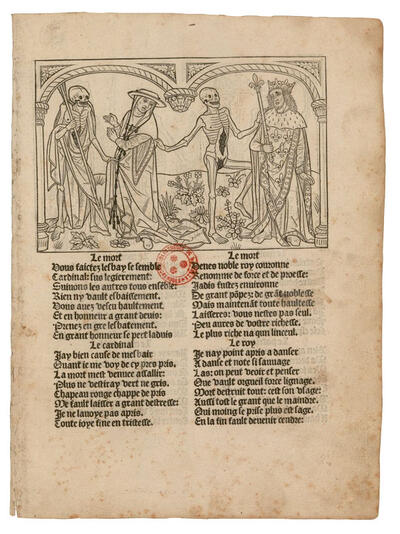 Le mort
Vous faictez lesbay se semble
Cardinal: sus legierement:
Suiuons les autres tous ensẽble:
Rien ny vault esbaissement.
Vous auez vescu haultement:
Et en honneur a grant deuis:
Prenez en gre les batement.
En grant honneur se pert laduis
Le cardinal
Jay bien cause de mesbair
Quant ie me voy de cy pres pris.
La mort mest venue assallir:
Plus ne vestiray vert ne gris.
Chapeau rouge chappe de pris
Me fault laisser a grant destresse:
Je ne lauoye pas apris.
Toute ioye fine en tristesse.
Le mort
Venes noble roy couronne
Renomme de force et de proesse:
Jadis fustez enuironne
De grant põpez: de grãt noblesse
Mais maintenãt toute haultesse
Laisseres: vous nestes pas seul.
Peu aures de vostre richesse.
Le plus riche na qun linceul.
Le roy
Je nay point apris a danser
A danse et note si sauuage
Las: on peut veoir et penser
Que vault orgueil force lignage.
Mort destruit tout: cest son vsage:
Aussi tost le grant que le maindre.
Qui moing se prise plus est sage.
En la fin fault deuenir cendre: